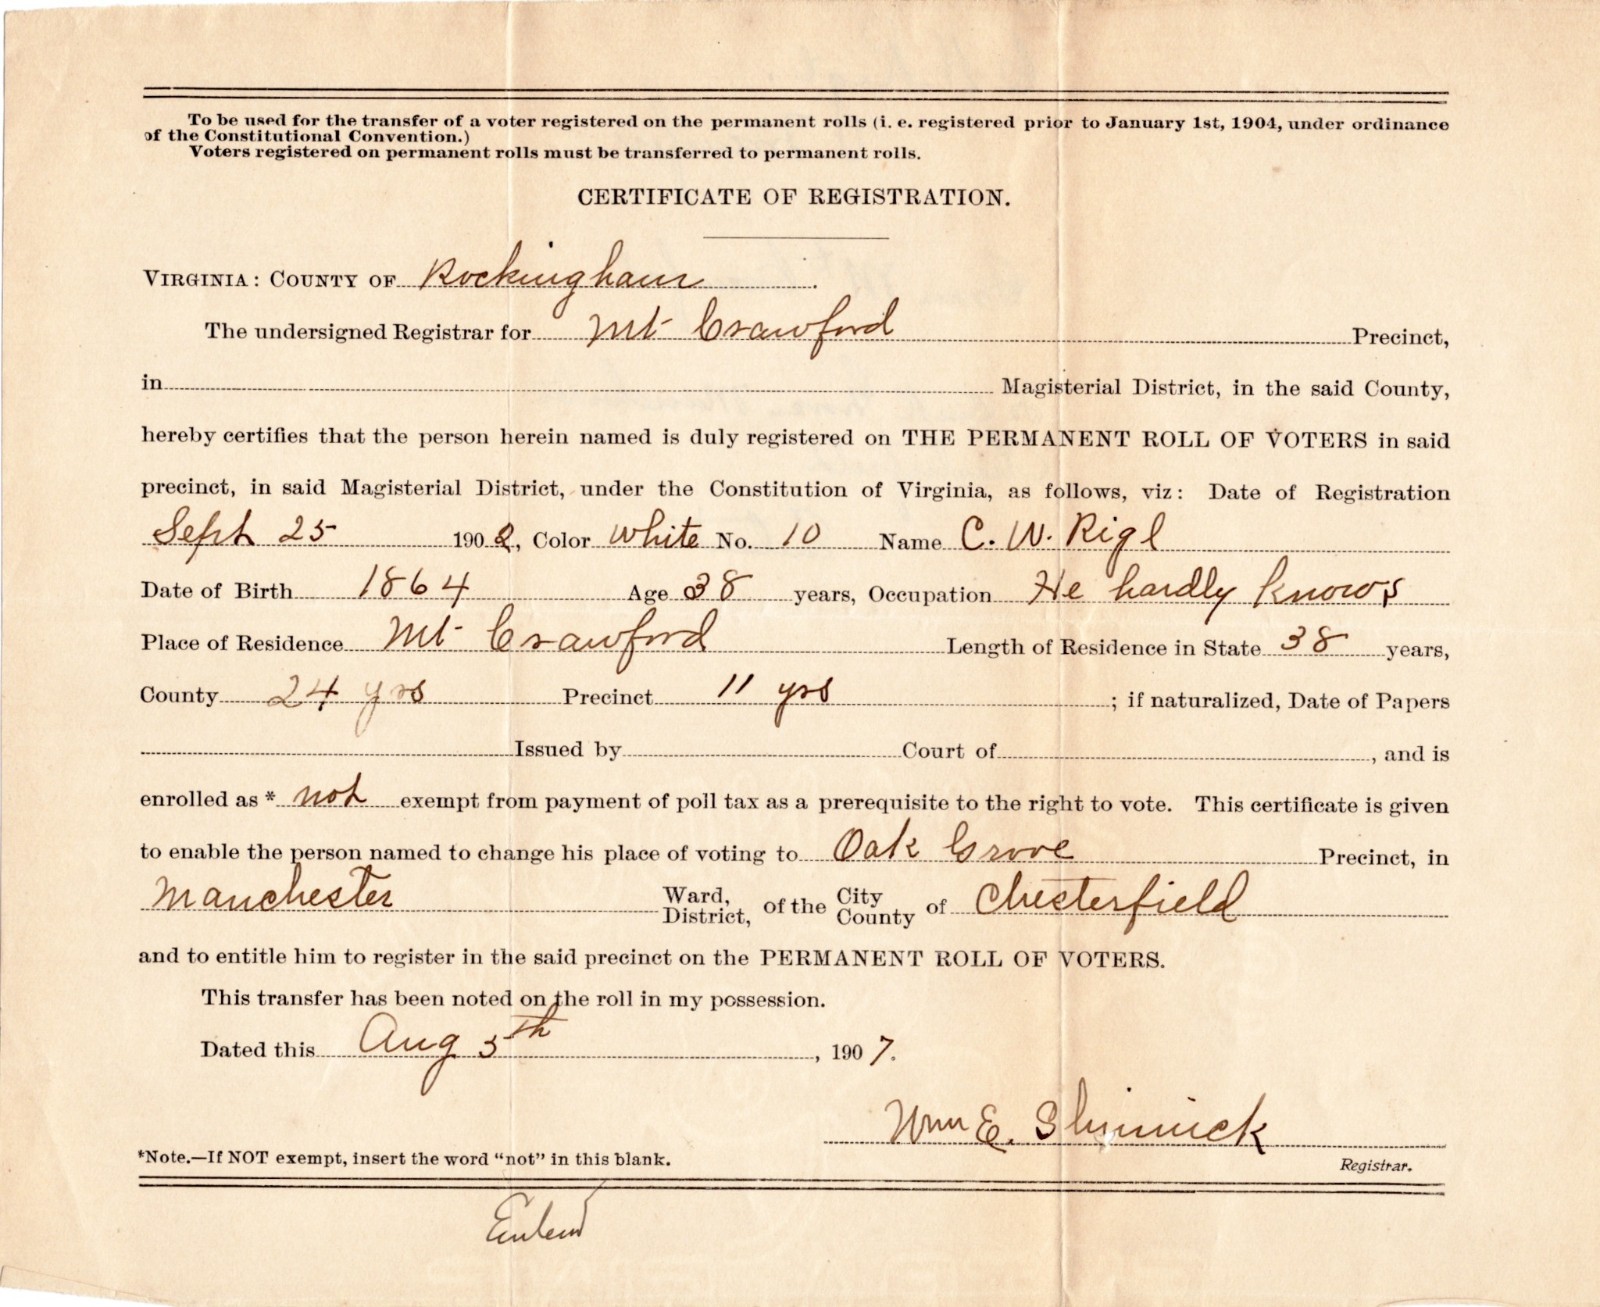 To be used for the transfer of a voter registered on the permanent rolls (i. e. registered prior to January 1st, 1904, under ordinance
of the Constitutional Convention.)
Voters registered on permanent rolls must be transferred to permanent rolls.
CERTIFICATE OF REGISTRATION.
VIRGINIA: COUNTY OF Rockingham.
The undersigned Registrar for Mt Crawford Precinct,
in Magisterial District, in the said County,
hereby certifies that the person herein named is duly registered on THE PERMANENT ROLL OF VOTERS in said
precinct, in said Magisterial District, under the Constitution of Virginia, as follows, viz: Date of Registration
Sept 25 1902, Color White No. 10 Name C. W. Rigl
Date of Birth 1864 Age 38 years, Occupation He hardly knows
Place of Residence Mt Crawford Length of Residence in State 38 years,
County 24 yrs Precinct 11 yrs ; if naturalized, Date of Papers
Issued by Court of , and is
enrolled as * not exempt from payment of poll tax as a prerequisite to the right to vote. This certificate is given
to enable the person named to change his place of voting to Oak Grove Precinct, in
Manchester Ward, District, of the City County of Chesterfield
and to entitle him to register in the said precinct on the PERMANENT ROLL OF VOTERS.
This transfer has been noted on the roll in my possession.
Dated this Aug 5th, 1907.
Wm E. Shinnick
*Note.—If NOT exempt, insert the word "not" in this blank.
Registrar.